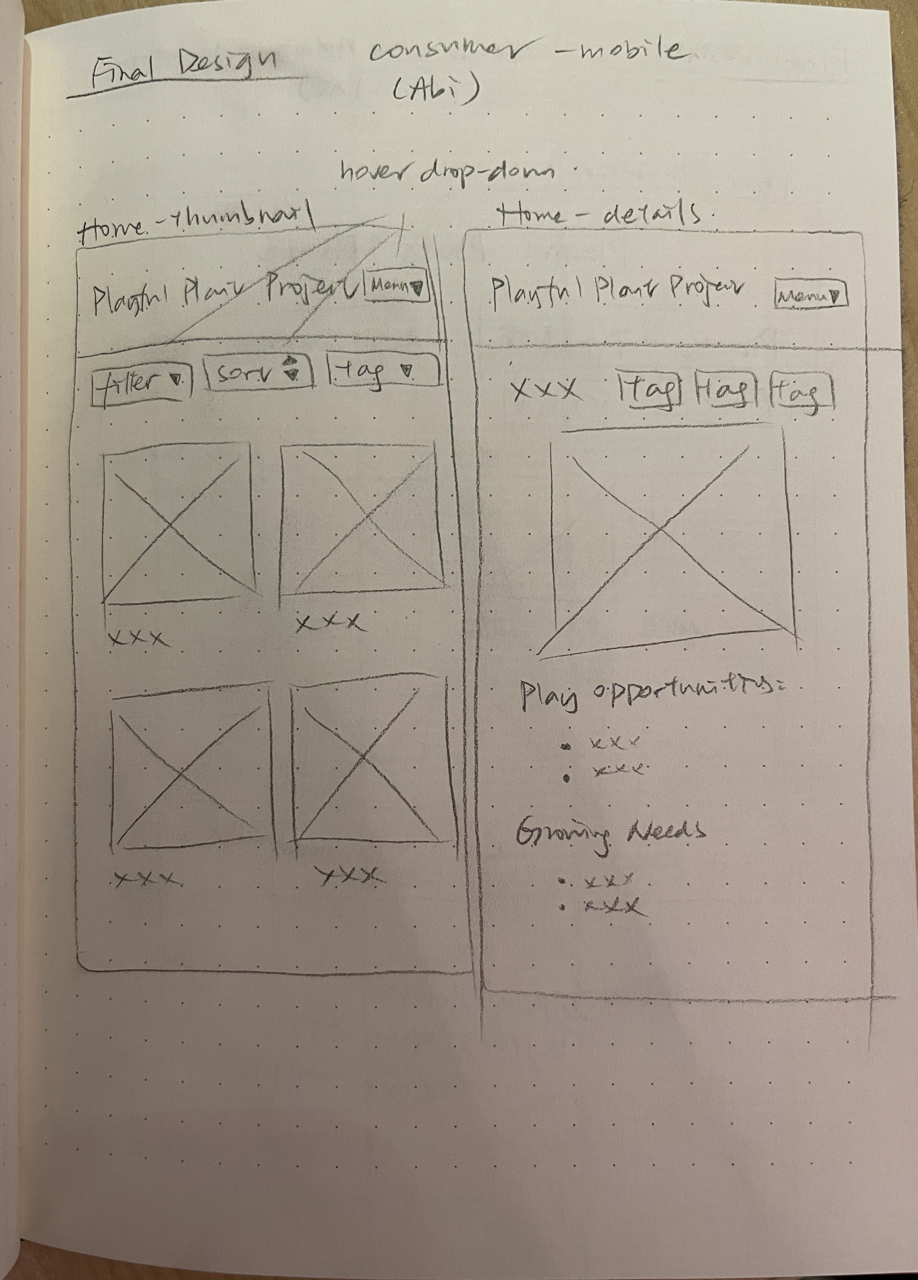 Final Design
consumer - mobile
(Abi)
hover drop-down
Home - thumbnail
Playful Plant Project
Menu ▼
filter ▼
sort ▲▼
tag ▼
xxx
xxx
xxx
xxx
Home - details
Playful Plant Project
Menu ▼
xxx
tag
tag
tag
Play opportunities:
• xxx
• xxx
Growing Needs
• xxx
• xxx